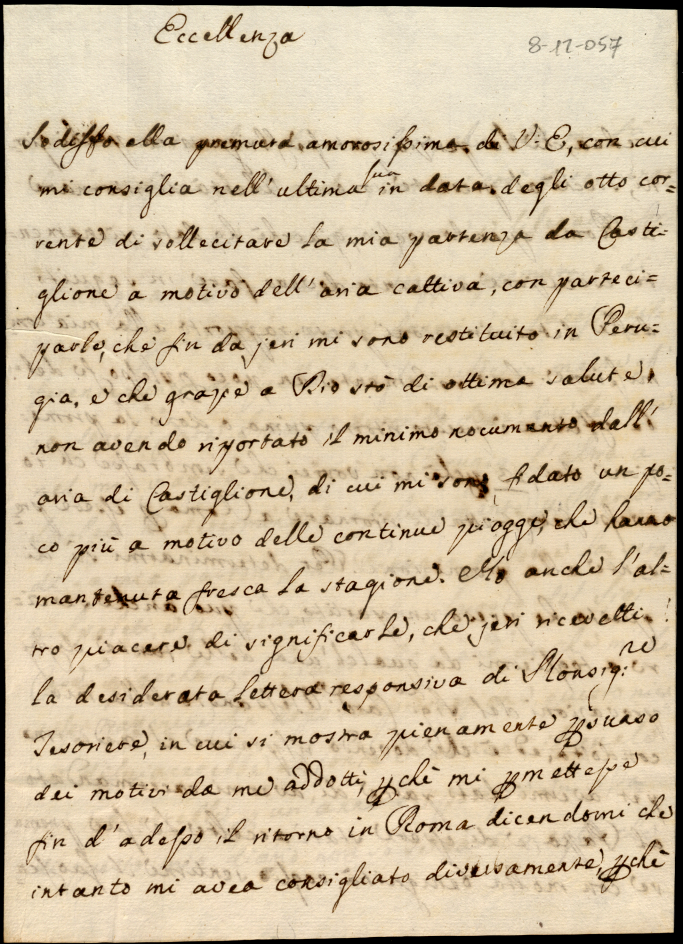 Eccellenza
8-12-057
Sodisfo alla premura amorosissima di V: E, con cui
mi consiglia nell' ultima sua in data degli otto, cor=
rente di sollecitare la mia partenza da Casti=
glione a motivo dell' aria cattiva, con parteci=
parle, che fin da jeri mi sono restituito in Peru=
gia, e che grazie a Dio stò di ottima salute,
non avendo riportato il minimo nocumento dall'
aria di Castiglione, di cui mi sono fidato un po=
co più a motivo delle continue piogge, che hanno
mantenuta fresca la stagione. Hò anche l' al=
tro piacere di significarle, che jeri ricevetti
la desiderata lettera responsiva di Monsig:re
Tesoriere, in cui si mostra pienamente ꝑsuaso
dei motivi da me addotti, ꝑchè mi ꝑmettesse
fin d' adesso il ritorno in Roma dicendomi che
intanto mi avea consigliato diversamente, ꝑchè